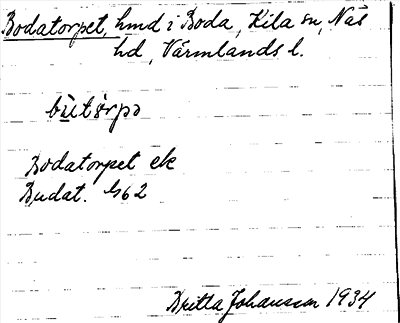 Bodatorpet, hmd i Boda, Kila sn, Näs
hd, Värmlands l.
bùtårpə
Bodatorpet ek
Budat. G62
Britta Johansson 1934